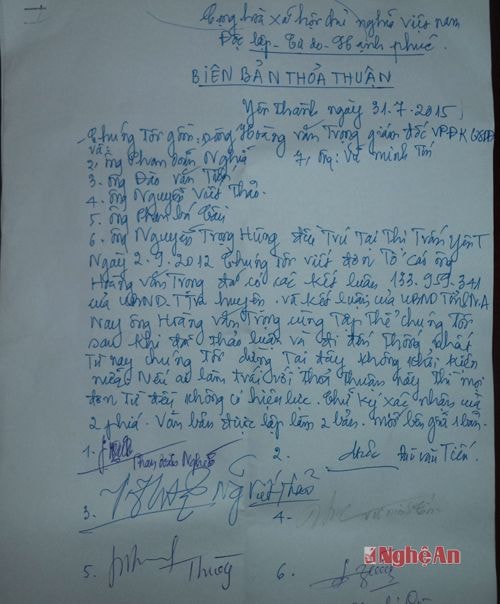 Cộng hòa xã hội chủ nghĩa việt nam
Độc lập - Tự do - Hạnh phúc.
BIÊN BẢN THỎA THUẬN
Yên Thành ngày 31.7.2015
Chúng Tôi gồm: 1, ông Hoàng Văn Trọng giám đốc VPĐK QSDĐ
và
2, ông Phan Doãn Nghệ 7, ông: Vũ Minh Tú
3. ông Đào Văn Tiến
4. ông Nguyễn Viết Thảo.
5. ông Phan Bá
6. ông Nguyễn Trọng Hùng đều Trú Tại Thị Trấn Yên T
Ngày 2.9.2012 Chúng Tôi viết đơn Tố cáo ông
Hoàng Văn Trọng đã có các Kết luận 133.959.341
của UBND huyện. và Kết luận của UBND Tỉnh N.A
Nay ông Hoàng Văn Trọng cùng Tập Thể chúng Tôi
sau khi đã Thảo luận và đi đến Thống nhất
Từ nay chúng Tôi dừng Tại đây không khiếu kiện
nữa. Nếu ai làm trái với Thỏa Thuận này Thì mọi
đơn Từ đều không có hiệu lực. Chữ Ký xác nhận của
2 phía. Văn bản được lập làm 2 bản. mỗi bên giữ 1 bản.
1. Phan Doãn Nghệ 2. Đào Văn Tiến.
3. Ng Viết Thảo 4. Vũ Minh Tú
5. Thuỳ 6.
Nghệ An